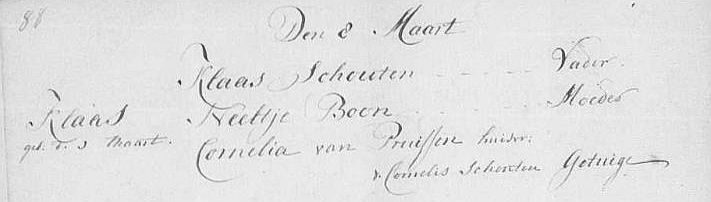 88
Den 8 Maart
Klaas Schouten - - - - Vader.
Klaas Neeltje Boon - - - - Moeder
geb. d. 3 Maart. Cornelia van Pruissen huisvr:
v. Cornelis Schouten Getuige